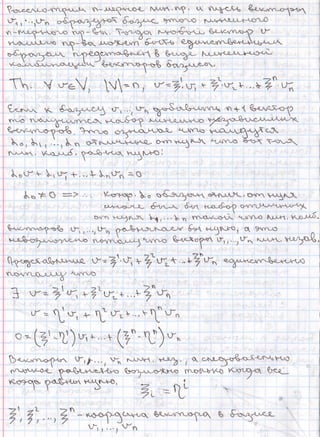 Рассмотрим n-мерное лин.пр. и пусть векторы
v₁,...,vₙ образуют базис этого линейного
n-мерного пр-ва. Тогда любой вектор v
нашего пр-ва может быть единственным
образом представлен в виде линейной
комбинации векторов базиса.
Th: ∀ v∈V, |V|=n, v=ξ¹v₁+ξ²v₂+...+ξⁿvₙ
Если к базису v₁,...,vₙ добавить n+1 вектор
то получится набор линейно зависимых
векторов. Это означает что найдутся
λ₀, λ₁,..., λₙ отличные от нуля что
лин. комб. равна нулю:
λ₀v+λ₁v₁+...+λₙvₙ=0
λ₀≠0 => коэф. λ₀ обязан отлич. от нуля
иначе был бы набор отличных
от нуля λ₁...λₙ такой что лин. комб.
векторов v₁,...,vₙ равнялась бы нулю, а это
невозможно потому что векторы v₁,...,vₙ лин. незав.
Представление v=ξ¹v₁+ξ²v₂+...+ξⁿvₙ единственно
потому что
∃ v=ξ¹v₁+ξ²v₂+...+ξⁿvₙ
v=η¹v₁+η²v₂+...+ηⁿvₙ
0=(ξ¹-η¹)v₁+...+(ξⁿ-ηⁿ)vₙ
Векторы v₁,...,vₙ лин. нез., а следовательно
равенство возможно только когда все
коэф равны нулю,
ξᵢ=ηⁱ
ξ¹, ξ²,..., ξⁿ - координа вектора в базисе
v₁,...,vₙ